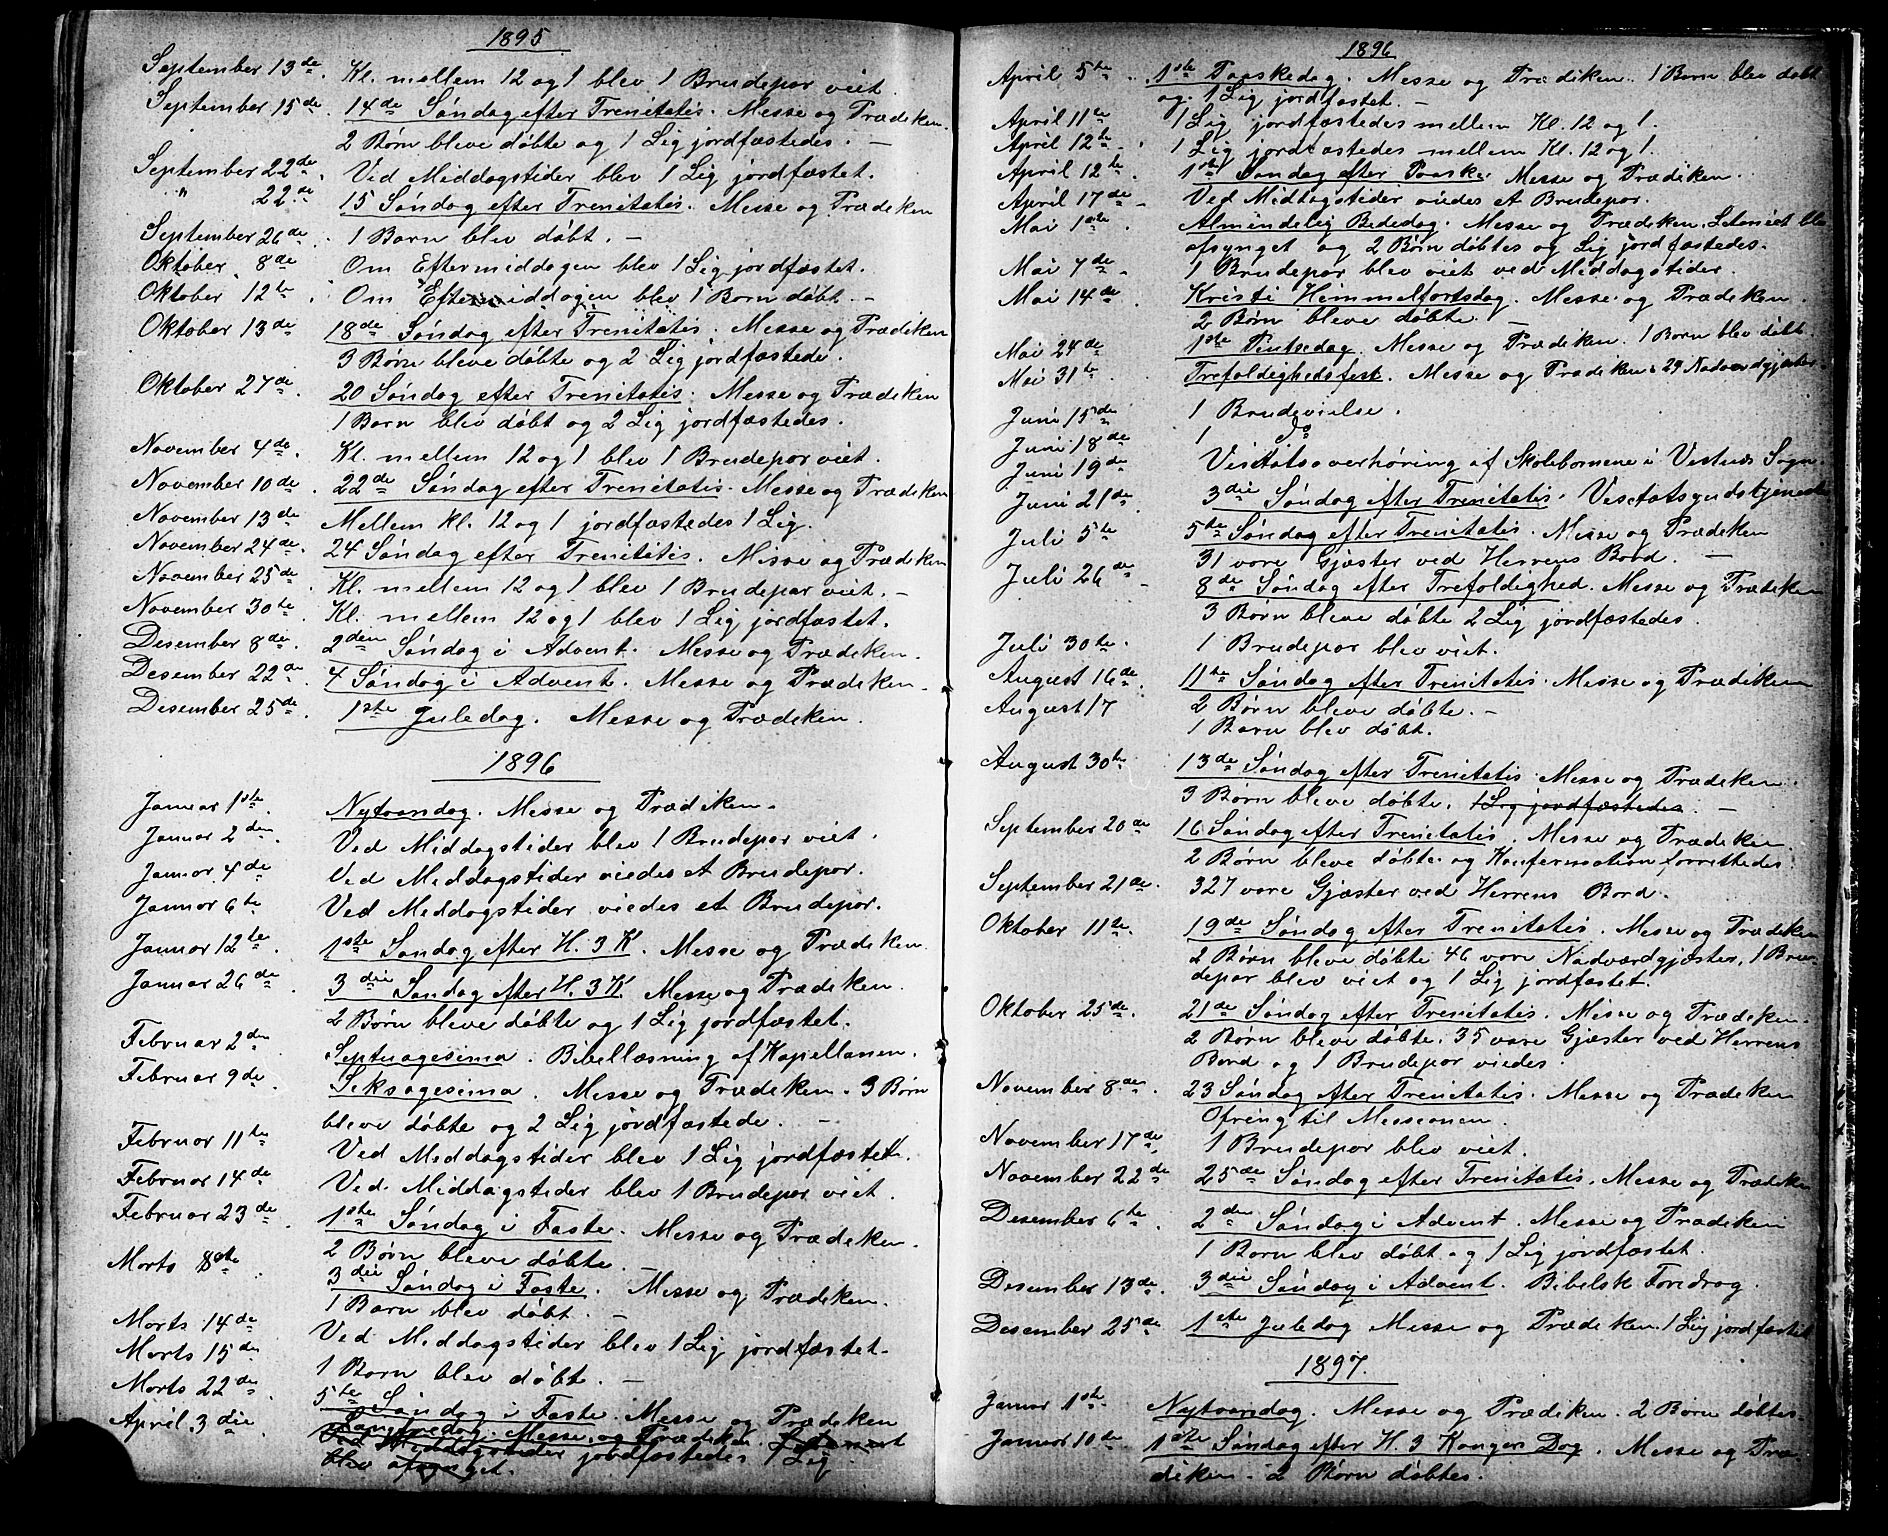 1895
September 13de. Kl. mellem 12 og 1 blev 1 Brudepar viet.
September 15de. 14de Søndag efter Trenitatis. Messe og Prædeken.
2 Børn bleve døbte og 1 Lig jordfæstedes. —
September 22de. Ved Middagstider blev 1 Lig jordfæstet.
" 22de. 15 Søndag efter Trenitatis. Messe og Prædeken
September 26de. 1 Barn blev døbt. —
Oktober 8de. Om Eftermiddagen blev 1 Lig jordfæstet.
Oktober 12te. Om Eftermiddagen blev 1 Barn døbt. —
Oktober 13de 18de Søndag efter Trenitatis. Messe og Prædeken
3 Børn bleve døbte og 2 Lig jordfæstede.
Oktober 27de. 20 Søndag efter Trenitatis. Messe og Prædeken
1 Barn blev døbt og 2 Lig jordfæstedes.
November 4de. Kl. mellem 12 og 1 blev 1 Brudepar viet.
November 10de. 22de Søndag efter Trenitatis. Messe og Prædeken
November 13de Mellem kl. 12 og 1 jordfæstedes 1 Lig.
November 24de. 24 Søndag efter Trenititis. Messe og Prædeken
November 25de. Kl. mellem 12 og 1 blev 1 Brudepar viet. —
November 30te. Kl. mellem 12 og 1 blev 1 Lig jordfæstet.
Desember 8de. 2den Søndag i Advent. Messe og Prædeken.
Desember 22de. 4 Søndag i Advent. Messe og Prædeken.
Desember 25de. 1ste Juledag. Messe og Prædeken.
1896
Januar 1ste. Nytaarsdag. Messe og Prædiken.
Januar 2den. Ved Middagstider blev 1 Brudepar viet.
Januar 4de Ved Middagstider viedes et Brudepar.
Januar 6te Ved Middagstider viedes et Brudepar.
Januar 12te. 1ste Søndag efter H. 3 K. Messe og Prædeken.
Januar 26de. 3die Søndag efter H. 3 K. Messe og Prædeken.
2 Børn bleve døbte og 1 Lig jordfæstet.
Februar 2den Septuagesima. Bibellæsning af Kapellanen.
Februar 9de. Seksagesima. Messe og Prædeken. 3 Børn
bleve døbte og 2 Lig jordfæstede. —
Februar 11te. Ved Middagstider blev 1 Lig jordfæstet.
Februar 14de. Ved Middagstider blev 1 Brudepar viet.
Februar 23de. 1ste Søndag i Faste. Messe og Prædeken.
2 Børn bleve døbte.
Marts 8de. 3die Søndag i Faste. Messe og Prædeken.
1 Barn blev døbt. —
Marts 14de Ved Middagstider blev 1 Lig jordfæstet.
Marts 15de 1 Barn blev døbt. —
Marts 22de. 5te Søndag i Faste. Messe og Prædeken
April 3die Langfredag. Messe og Prædeken.
Ved Middagstider jordfæstedes 1 Lig
blev afsynget.
1896
April 5te. 1ste Paaskedag. Messe og Prædiken. 1 Barn blev døbt
og 1 Lig jordfæstet. —
April 11te 1 Lig jordfæstedes mellem Kl. 12 og 1.
April 12te. 1 Lig jordfæstedes mellem Kl. 12 og 1.
April 12te 1ste Søndag efter Paaske. Messe og Prædiken.
April 17de. Ved Middagstider viedes et Brudepar.
Mai 1ste. Almindelig Bededag. Messe og Prædeken. Letaniet blev
afsynget og 2 Børn døbtes og Lig jordfæstedes.
Mai 7de. 1 Brudepar blev viet ved Middagstider.
Mai 14de. Kristi Himmelfartsdag. Messe og Prædeken.
2 Børn bleve døbte. —
Mai 24de 1ste Pintsedag. Messe og Prædeken. 1 Barn blev døbt.
Mai 31te. Trefoldighedsfest. Messe og Prædiken. 29 Nadverdgjæster.
Juni 15de 1 Brudevielse.
Juni 18de 1 do
Juni 19de Visitatsoverhøring af Skolebørnene i Sogn.
Juni 21de. 3die Søndag efter Trenitatis. Visitatsgudstjeneste
Juli 5te 5te Søndag efter Trenitatis. Messe og Prædeken
31 vare Gjæster ved Herrens Bord. —
Juli 26de 8de Søndag efter Trefoldighed. Messe og Prædeken
3 Børn bleve døbte 2 Lig jordfæstedes.
Juli 30te. 1 Brudepar blev viet.
August 16de. 11te Søndag efter Trenitatis. Messe og Prædiken
2 Børn bleve døbte. —
August 17 1 Barn blev døbt.
August 30te 13de Søndag efter Trenitatis Messe og Prædeken.
3 Børn bleve døbte. 1 Lig jordfæstedes. —
September 20de 16 Søndag efter Trenitatis. Messe og Prædeken.
2 Børn bleve døbte og Konfermation forrettedes.
September 21de. 327 vare Gjæster ved Herrens Bord.
Oktober 11te. 19de Søndag efter Trenitatis. Messe og Prædeken
2 Børn bleve døbte 46 vare Nadværdgjæster, 1 Bru-
depar blev viet og 1 Lig jordfæstet.
Oktober 25de. 21de Søndag efter Trenitatis. Messe og Prædeken.
2 Børn bleve døbte. 35 vare Gjæster ved Herrens
Bord og 1 Brudepar viedes.
November 8de. 23 Søndag efter Trenitatis. Messe og Prædeken
Ofring til Messionen.
November 17de. 1 Brudepar blev viet.
November 22de 25de Søndag efter Trenitatis. Messe og Prædeken
Desember 6te. 2den Søndag i Advent. Messe og Prædeken
1 Barn blev døbt og 1 Lig jordfæstet.
Desember 13de. 3die Søndag i Advent. Bibelsk Foredrag.
Desember 25de 1ste Juledag Messe og Prædeken. 1 Lig jordfæstet
1897.
Januar 1ste. Nytaarsdag. Messe og Prædiken. 2 Børn døbtes.
Januar 10te. 1ste Søndag efter H. 3 Kongers Dag. Messe og Præ-
diken. 2 Børn døbtes.